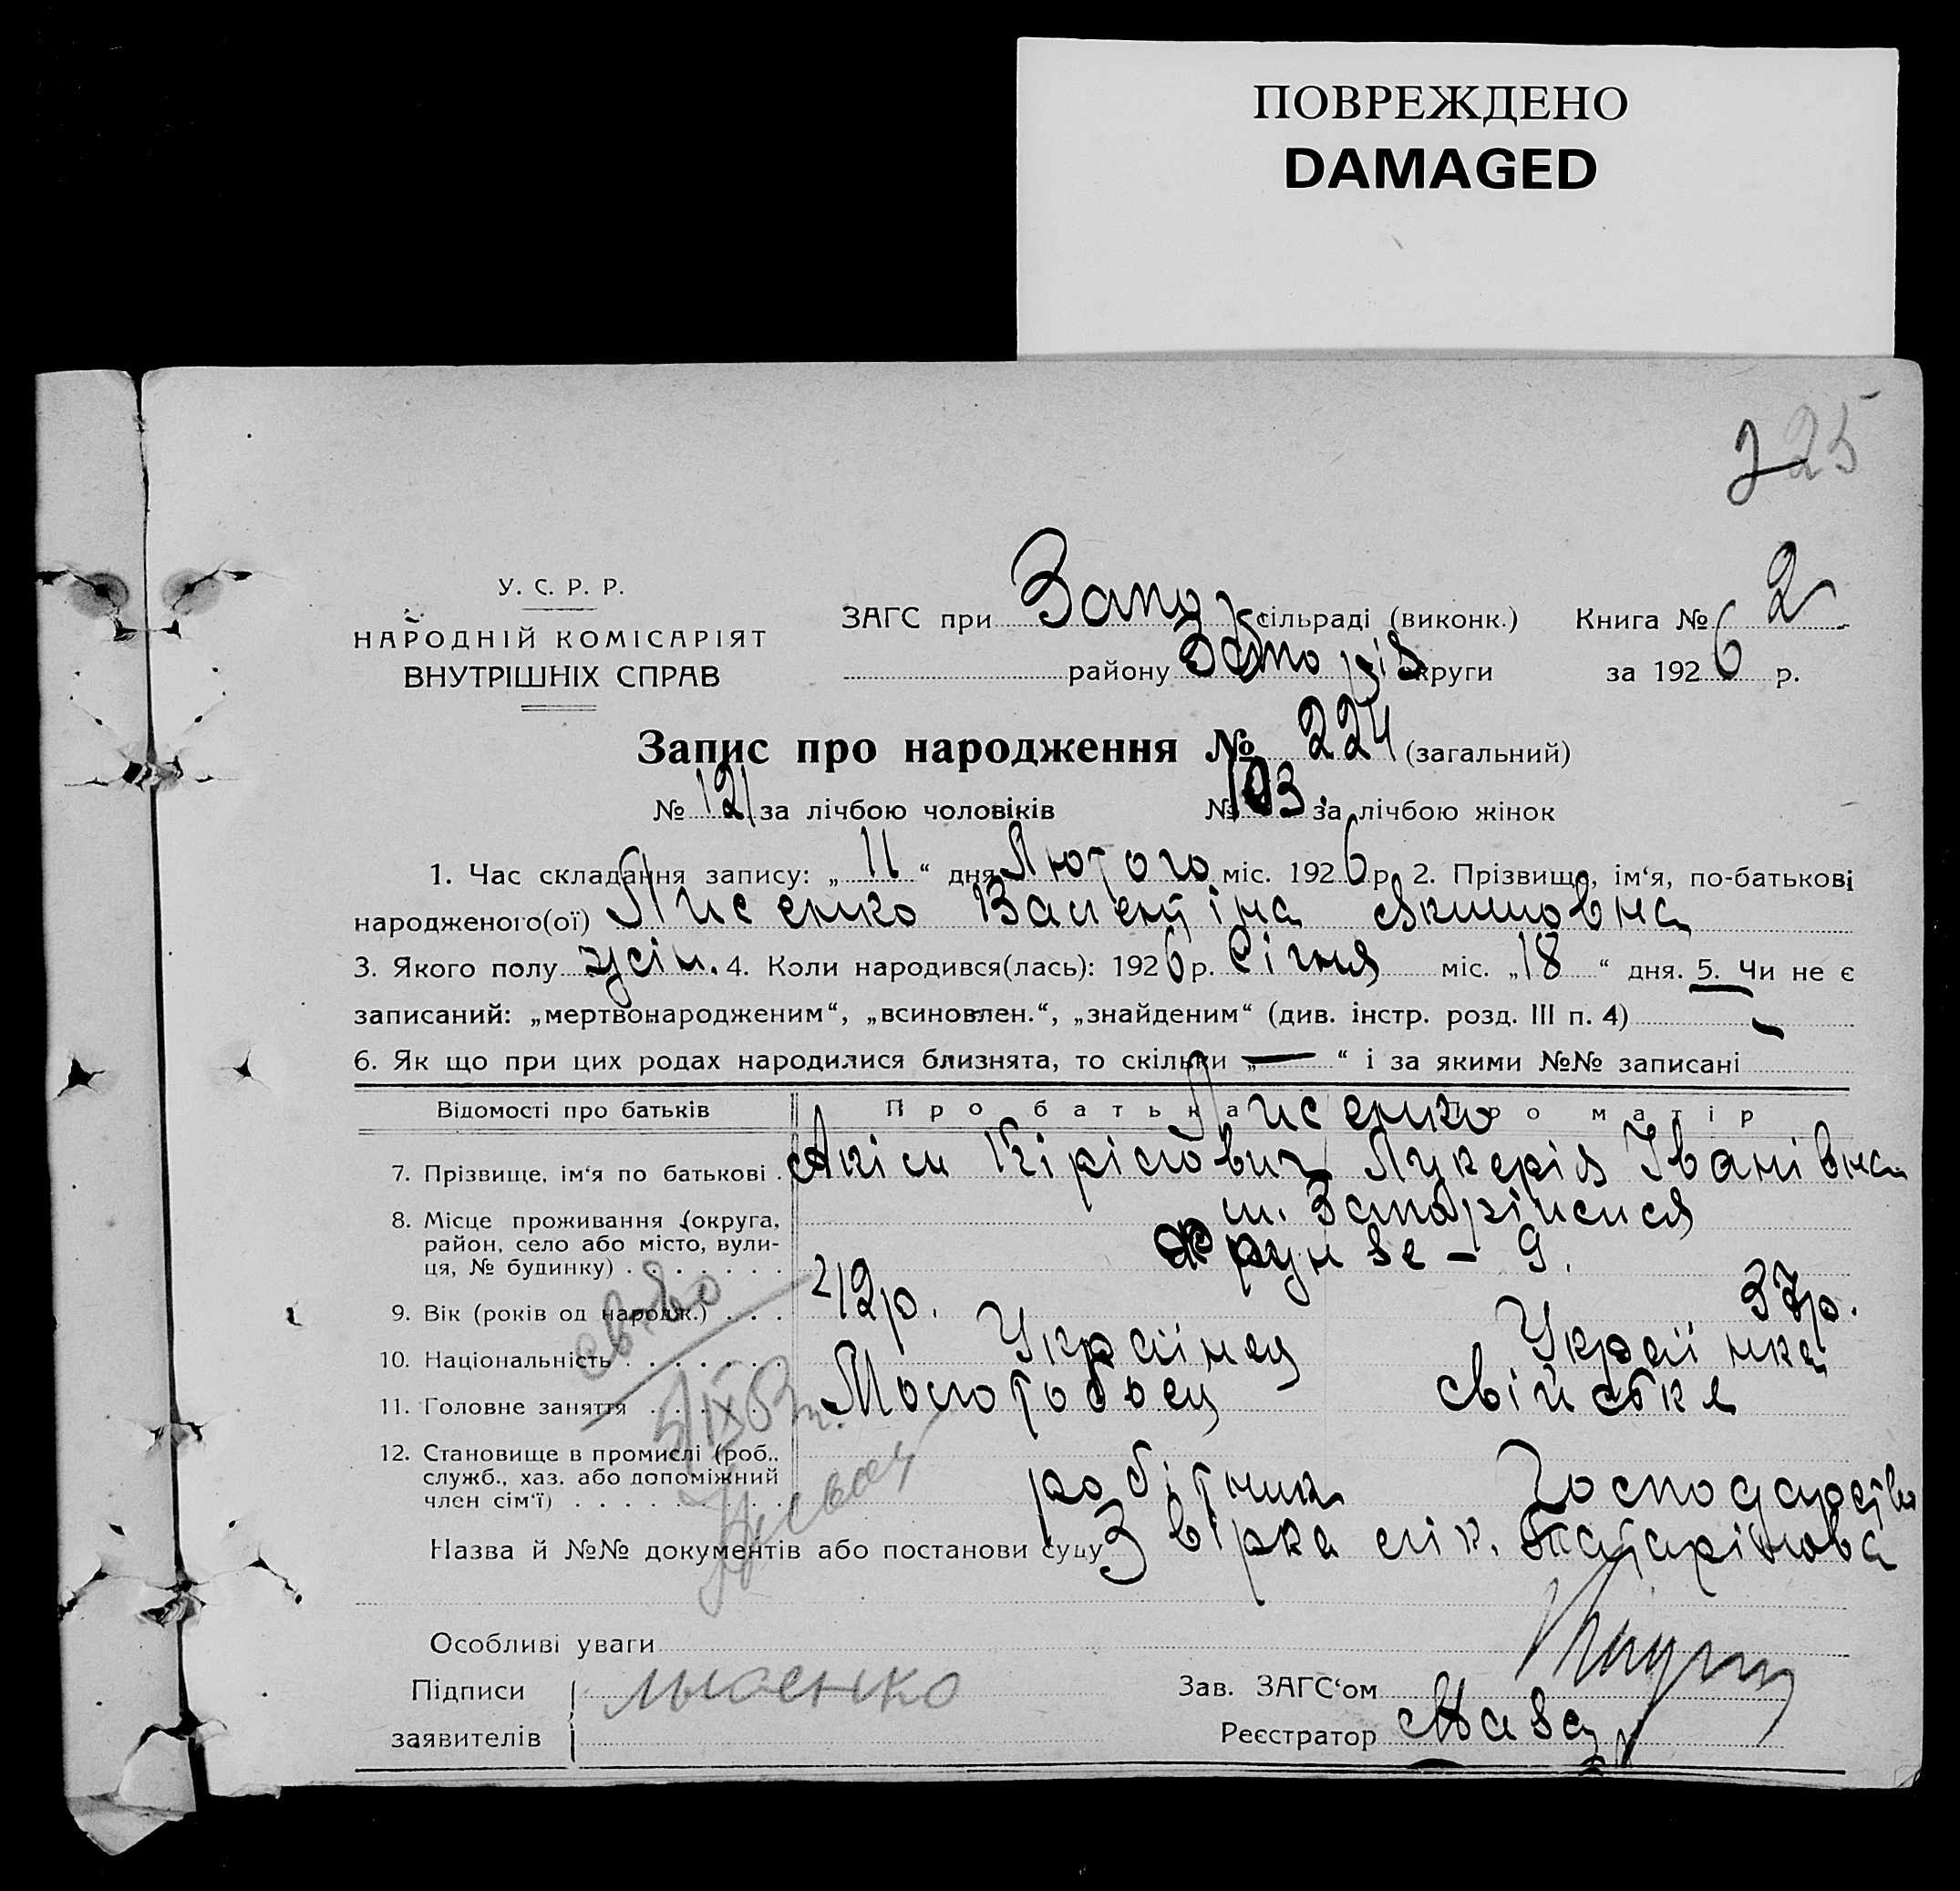 ПОВРЕЖДЕНО
DAMAGED
225
У. С. Р. Р.
НАРОДНІЙ КОМІСАРІЯТ
ВНУТРІШНІХ СПРАВ
ЗАГС при Запо сільраді (виконк.) Книга № 2
району Запоріз округи за 1926 р.
Запис про народження № 224 (загальний)
№ 121 за лічбою чоловіків № 103 за лічбою жінок
1. Час складання запису: „ 11 “ дня Лютого міс. 1926 р. 2. Прізвище, ім‘я, по-батькові
народженого(ої) Лисенко Валентіна Якимовна
3. Якого полу жін. 4. Коли народився(лась): 1926 р. Січня міс. „18 “ дня. 5. Чи не є
записаний: „мертвонародженим“, „всиновлен.“, „знайденим“ (див. інстр. розд. III п. 4) –
6. Як що при цих родах народилися близнята, то скільки „ — “ і за якими №№ записані
Відомості про батьків Про батька Про матір
Лисенко
7. Прізвище, ім‘я по батькові . Акім Кірілович Лукерія Іванівна
8. Місце проживання (округа,
район, село або місто, вули-
ця, № будинку) . . . . . . . .
м. Запоріжжя
Фрунзе – 9.
9. Вік (років од народж.) . . . 42р. 37р.
10. Національність . . . . . . . Українец Українка
11. Головне заняття . . . . . Молотобоец свійське
12. Становище в промислі (роб.,
служб., хаз. або допоміжний
член сім‘ї) . . . . . . . . . .
робітник господарство
Назва й №№ документів або постанови суду Звірка лік. Татарінова
Особливі уваги
Підписи
заявителів
лысенко
Зав. ЗАГС‘ом
Реєстратор